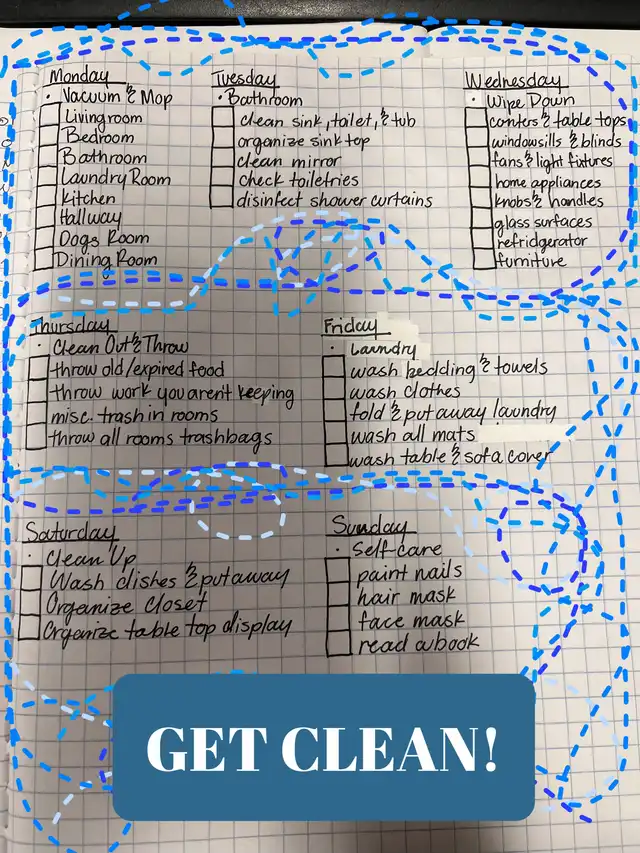 Monday
· Vacuum & Mop
Livingroom
Bedroom
Bathroom
Laundry Room
kitchen
Hallway
Dogs Room
Dining Room
Tuesday
· Bathroom
clean sink, toilet, & tub
organize sink top
clean mirror
check toiletries
disinfect shower curtains
Wednesday
· Wipe Down
counters & table tops
windowsills & blinds
fans & light fixtures
home appliances
knobs & handles
glass surfaces
refridgerator
furniture
Thursday
· Clean Out & Throw
throw old/expired food
throw work you arent keeping
misc. trash in rooms
throw all rooms trashbags
Friday
· Laundry
wash bedding & towels
wash clothes
fold & put away laundry
wash all mats
wash table & sofa cover
Saturday
· Clean Up
Wash dishes & put away
Organize Closet
Organize table top display
Sunday
· Self-care
paint nails
hair mask
face mask
read a book
GET CLEAN!